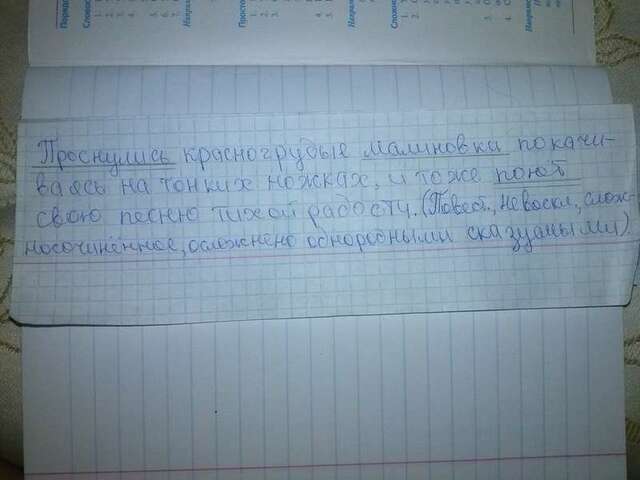 Проснулись красногрудые малиновки покачи-
ваясь на тонких ножках, и тоже поют
свою песню тихой радости. (Повест., невоскл, слож-
носочинённое, осложнено однородными сказуаными)